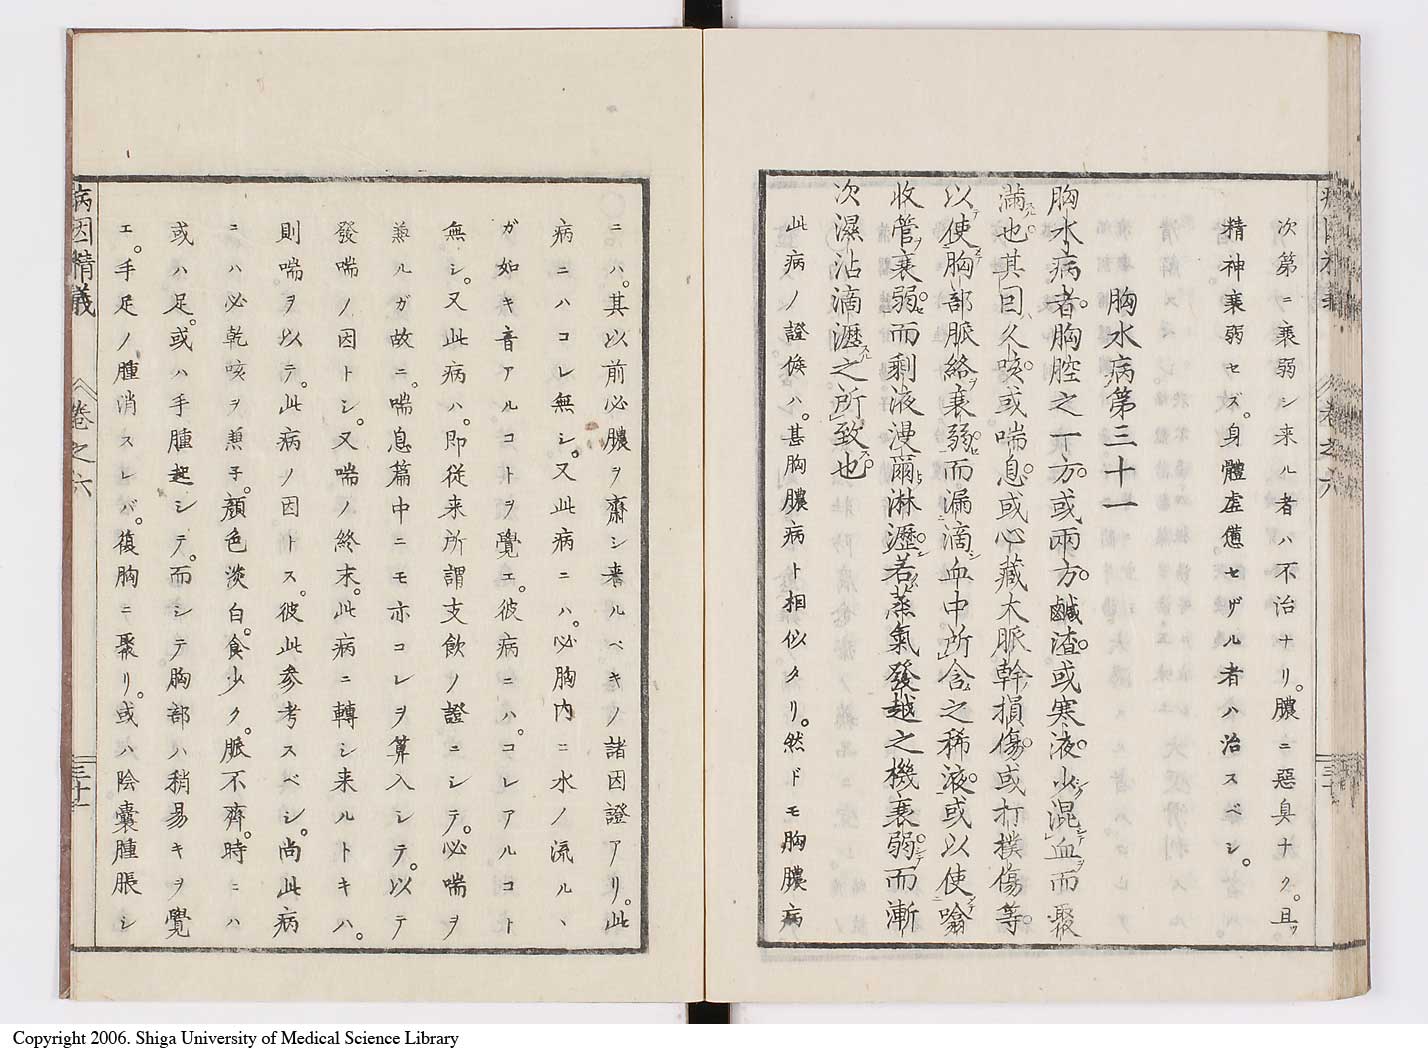 次第ニ衰弱シ来ル者ハ不治ナリ。膿ニ惡臭ナク。且ツ
精神衰弱セズ。身體虚憊セザル者ハ治スベシ。
胸水病第三十一
胸水病者。胸腔之一方。或兩方。鹹渣。或寒液。少混血而聚
滿也。其因久咳。或喘息。或心藏大脈幹損傷。或打撲傷等。
以使胸部脈絡衰弱。而漏滴血中所含之稀液。或以使噏
收管衰弱。而剩液漫爾淋瀝。若蒸氣發越之機衰弱。而漸
次濕沾滴瀝之所致也
此病ノ證候ハ。甚胸膿病ト相似タリ。然ドモ胸膿病
ニハ。其以前必膿ヲ齋シ来ルベキノ諸因證アリ。此
病ニハコレ無シ。又此病ニハ。必胸内ニ水ノ流ルヽ
ガ如キ音アルコトヲ覺エ。彼病ニハ。コレアルコト
無シ。又此病ハ。即従来所謂支飲ノ證ニシテ。必喘ヲ
兼ルガ故ニ。喘息篇中ニモ亦コレヲ算入シテ。以テ
發喘ノ因トシ。又喘ノ終末。此病ニ轉シ来ルトキハ。
則喘ヲ以テ。此病ノ因トス。彼此参考スベシ。尚此病
ニハ必乾咳ヲ兼子。顔色淡白。食少ク。脈不齊。時ニハ
或ハ足。或ハ手腫起シテ。而シテ胸部ハ稍易キヲ覺
エ。手足ノ腫消スレバ。復胸ニ聚リ。或ハ陰嚢腫脹シ
病因精義
卷之六
三十一